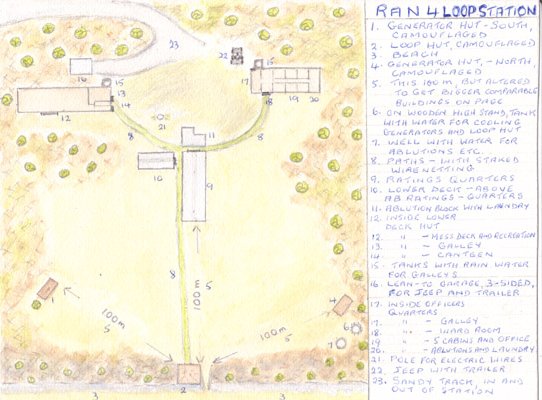 RAN 4 LOOP STATION
1. GENERATOR HUT - SOUTH,
CAMOUFLAGED
2. LOOP HUT, CAMOUFLAGED
3. BEACH
4. GENERATOR HUT, - NORTH,
CAMOUFLAGED
5. THIS 100 M, BUT ALTERED
TO GET BIGGER COMPARABLE
BUILDINGS ON PAGE
6. ON WOODEN HIGH STAND, TANK
WITH WATER FOR COOLING
GENERATORS AND LOOP HUT
7. WELL WITH WATER FOR
ABLUTIONS ETC.
8. PATHS - WITH STAKED
WIRENETTING
9. RATINGS QUARTERS
10. LOWER DECK - ABOVE
AB RATINGS - QUARTERS
11. ABLUTION BLOCK WITH LAUNDRY
12. INSIDE LOWER
DECK HUT
12 " - MESS DECK AND RECREATION
13. " - GALLEY
14 " - CANTEEN
15. TANKS WITH RAIN WATER
FOR GALLEYS
16. LEAN-TO GARAGE, 3-SIDED,
FOR JEEP AND TRAILER
17. INSIDE OFFICERS
QUARTERS
17. " - GALLEY
18 " - WARD ROOM
19 " - 5 CABINS AND OFFICE
20. " - ABLUTIONS AND LAUNDRY
21. POLE FOR ELECTRIC WIRES
22. JEEP WITH TRAILER
23. SANDY TRACK, IN AND
OUT OF STATION
23
22
16
15
15
17
13
14
18
19
20
12
8
21
11
8
10
9
8
100m
5
1
100m
5
100m
5
4
6
7
3
2
3